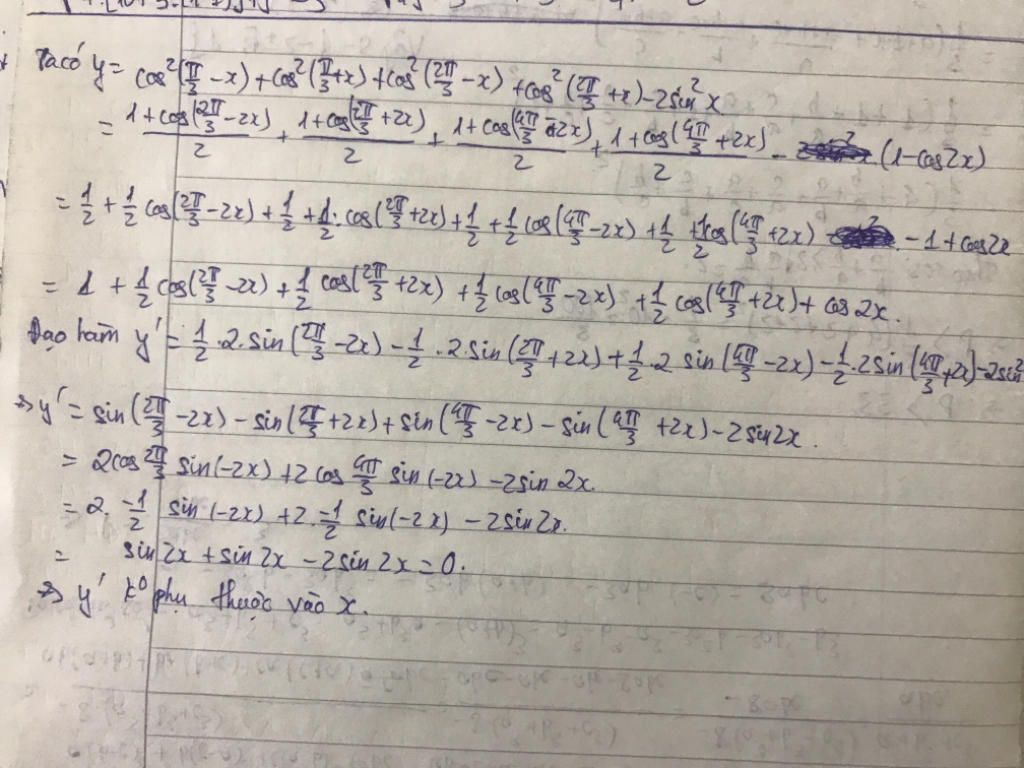 Ta có y = cos²(π/3 - x) + cos²(π/3 + x) + cos²(2π/3 - x) + cos²(2π/3 + x) - 2sin²x
= (1+cos(2π/3 - 2x))/2 + (1+cos(2π/3 + 2x))/2 + (1+cos(4π/3 - 2x))/2 + (1+cos(4π/3 + 2x))/2 - (1-cos2x)
= 1/2 + 1/2 cos(2π/3 - 2x) + 1/2 + 1/2 · cos(2π/3 + 2x) + 1/2 + 1/2 cos(4π/3 - 2x) + 1/2 + 1/2 cos(4π/3 + 2x) - 1 + cos2x
= 1 + 1/2 cos(2π/3 - 2x) + 1/2 cos(2π/3 + 2x) + 1/2 cos(4π/3 - 2x) + 1/2 cos(4π/3 + 2x) + cos 2x.
Đạo hàm y' = 1/2 · 2 · sin(2π/3 - 2x) - 1/2 · 2 · sin(2π/3 + 2x) + 1/2 · 2 sin(4π/3 - 2x) - 1/2 · 2 sin(4π/3 + 2x) - 2sin2
⇒ y' = sin(2π/3 - 2x) - sin(2π/3 + 2x) + sin(4π/3 - 2x) - sin(4π/3 + 2x) - 2sin2x.
= 2cos 2π/3 sin(-2x) + 2 cos 4π/3 sin(-2x) - 2sin 2x.
= 2 · -1/2 sin(-2x) + 2 · -1/2 sin(-2x) - 2sin2x.
= sin 2x + sin 2x - 2sin 2x = 0.
⇒ y' k° phụ thuộc vào x.